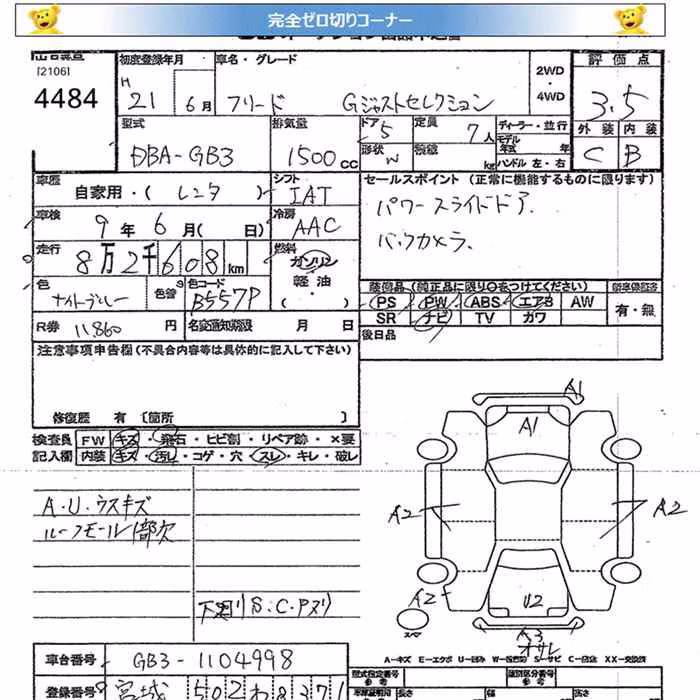 完全ゼロ切りコーナー
[2106]
4484
初度登録年月
車名・グレード
H
21 6月 フリード Gジャストセレクション
2WD
・
4WD
評価点
3.5
外装 内装
C B
型式 排気量 ドア 定員 ディーラー・並行
DBA-GB3 1500cc 5 7人
形状 W
積載 kg
モデル年式 年
ハンドル 左・右
車歴 自家用・(レンタ)
シフト IAT
車検 9年 6月( 日)
冷房 AAC
走行 8万2千608km
燃料 ガソリン・軽油・( )
色
色替
色コード B557P
R券 11860円
名変通知期限 月 日
セールスポイント (正常に機能するものに限ります)
パワースライドドア.
バックカメラ.
装備品(純正品に限り○をつけてください)
PS PW ABS エアB AW
SR ナビ TV カワ
有・無
後日品
注意事項申告欄(不具合内容等は具体的に記入して下さい)
修復歴 有 〔箇所 〕
検査員記入欄
FW キズ・飛石・ヒビ割・リペア跡・×要
内装 キズ・汚レ・コゲ・穴・スレ・キレ・破レ
A.U.ウスキズ
ルーフモール1部欠
下廻りS.C.Pヌリ
A1
A1
A2
A2
A2
U2
A3
オサレ
スペア
A-キズ E-エクボ U-凹み W-板金跡 S-サビ C-腐蝕 XX-交換済
車台番号 GB3-1104998
登録番号 宮城 502わ8371
型式指定番号
類別区分番号
長さ
幅
高さ